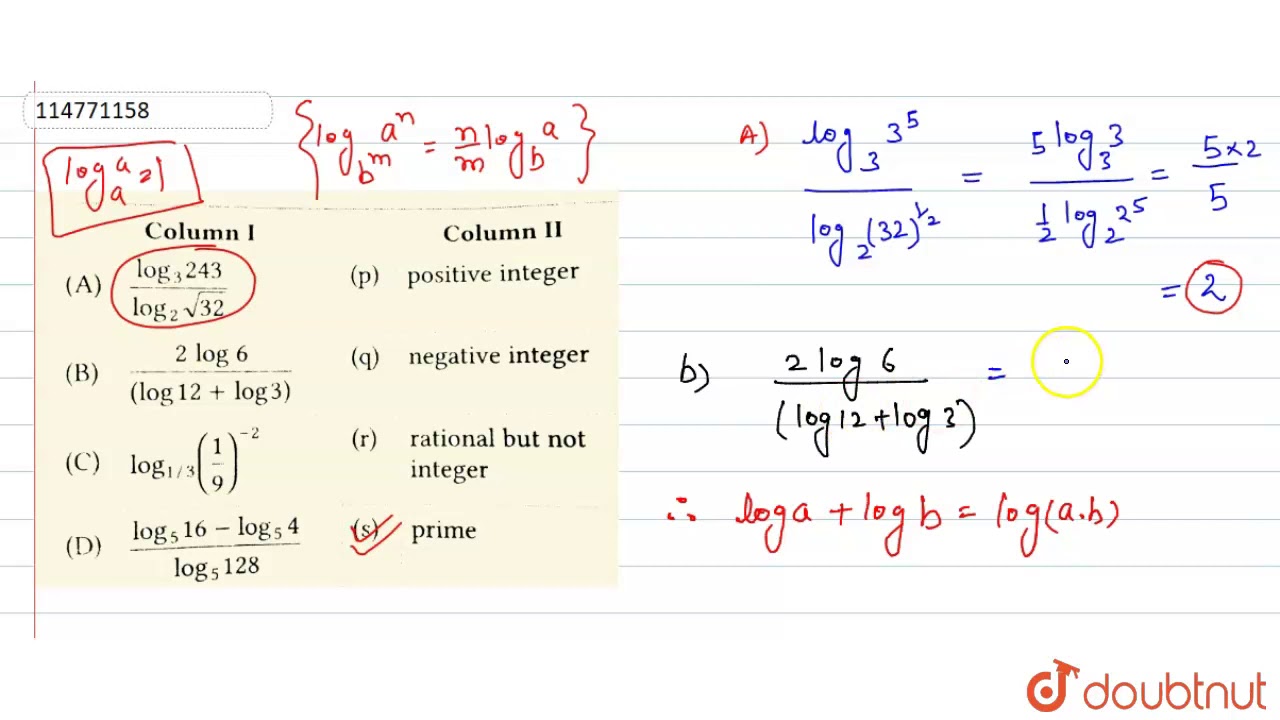 114771158
{log_{b^m} a^n = n/m log_b a}
log_a a = 1
Column I Column II
(A) log₃243 / log₂√32 (p) positive integer
(B) 2 log 6 / (log 12 + log 3) (q) negative integer
(C) log_{1/3}(1/9)^{-2} (r) rational but not
integer
(D) log₅16 − log₅4 / log₅128 (s) prime
A) log₃3⁵ / log₂(32)^{1/2} = 5 log₃3 / ½ log₂2⁵ = 5×2 / 5
= 2
b) 2 log 6 / (log 12 + log 3) =
∴ log a + log b = log(a.b)
doubtnut